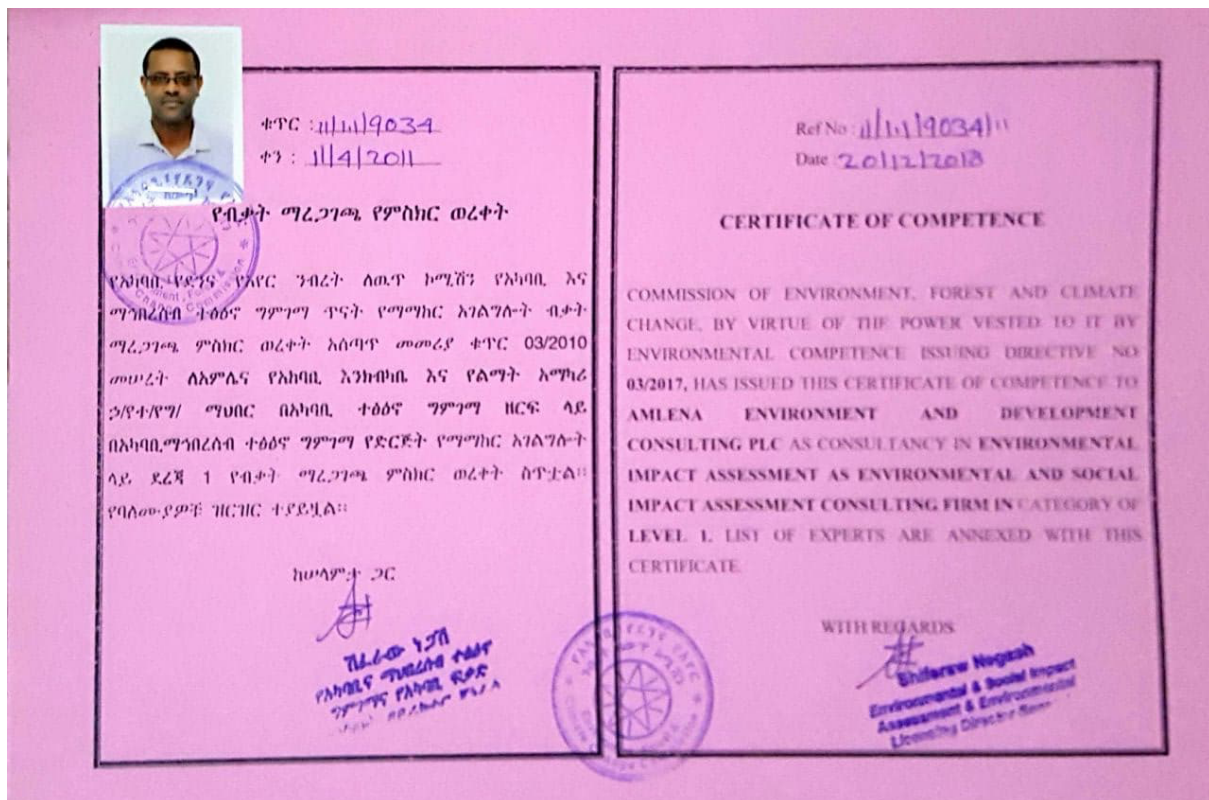 ቁጥር : 11/1.1/9034
ቀን : 11/4/2011
የብቃት ማረጋገጫ የምስክር ወረቀት
የአካባቢ የደንና የአየር ንብረት ለዉጥ ኮሚሽን የአካባቢ እና
ማኅበረሰብ ተፅዕኖ ግምገማ ጥናት የማማከር አገልግሎት ብቃት
ማረጋገጫ ምስክር ወረቀት አሰጣጥ መመሪያ ቁጥር 03/2010
መሠረት ለአምሌና የአከባቢ እንክብካቤ እና የልማት አማካሪ
ኃ/የተ/የግ/ ማህበር በአካባቢ ተፅዕኖ ግምገማ ዘርፍ ላይ
በአካባቢ.ማኅበረሰብ ተፅዕኖ ግምገማ የድርጅት የማማከር አገልግሎት
ላይ ደረጃ 1 የብቃት ማረጋገጫ ምስክር ወረቀት ሰጥቷል።
የባለሙያዎች ዝርዝር ተያይዟል።
ከሠላምታ ጋር
ሽፈራው ነጋሽ
የአካባቢና ማህበረሰብ ተፅዕኖ
ግምገማና የአካባቢ ፍቃድ
Ref No : 11/1.1/9034/11
Date 20/12/2018
CERTIFICATE OF COMPETENCE
COMMISSION OF ENVIRONMENT, FOREST AND CLIMATE
CHANGE, BY VIRTUE OF THE POWER VESTED TO IT BY
ENVIRONMENTAL COMPETENCE ISSUING DIRECTIVE NO
03/2017, HAS ISSUED THIS CERTIFICATE OF COMPETENCE TO
AMLENA ENVIRONMENT AND DEVELOPMENT
CONSULTING PLC AS CONSULTANCY IN ENVIRONMENTAL
IMPACT ASSESSMENT AS ENVIRONMENTAL AND SOCIAL
IMPACT ASSESSMENT CONSULTING FIRM IN CATEGORY OF
LEVEL 1. LIST OF EXPERTS ARE ANNEXED WITH THIS
CERTIFICATE
WITH REGARDS
Shiferaw Negash
Environmental & Social Impact
Assessment & Environmental
Licensing Director